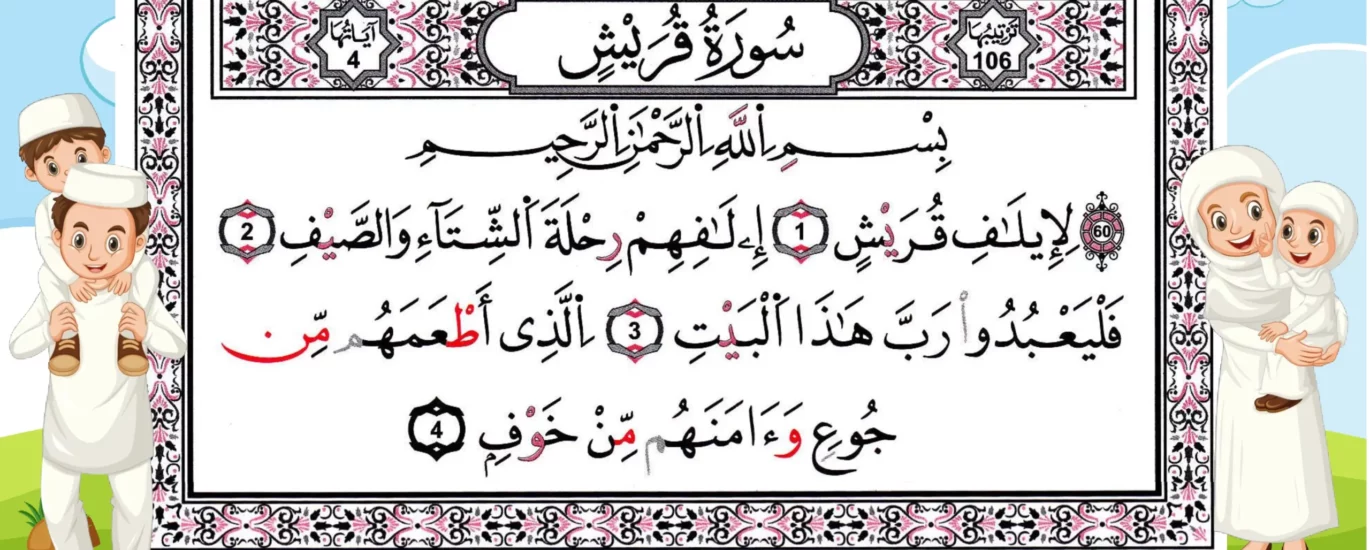 ترتيبها
106
سُورَةُ قُرَيْشٍ
آيَاتُهَا
4
بِسْمِ اِ۬للَّهِ اِ۬لرَّحْمَٰنِ اِ۬لرَّحِيمِ
60 لِإِيلَٰفِ قُرَيْشٍ 1 إِۦلَٰفِهِمْ رِحْلَةَ اَ۬لشِّتَآءِ وَالصَّيْفِ 2
فَلْيَعْبُدُواْ رَبَّ هَٰذَا اَ۬لْبَيْتِ 3 اِ۬لَّذِى أَطْعَمَهُم مِّن
جُوعٍ وَءَامَنَهُم مِّنْ خَوْفٍ 4